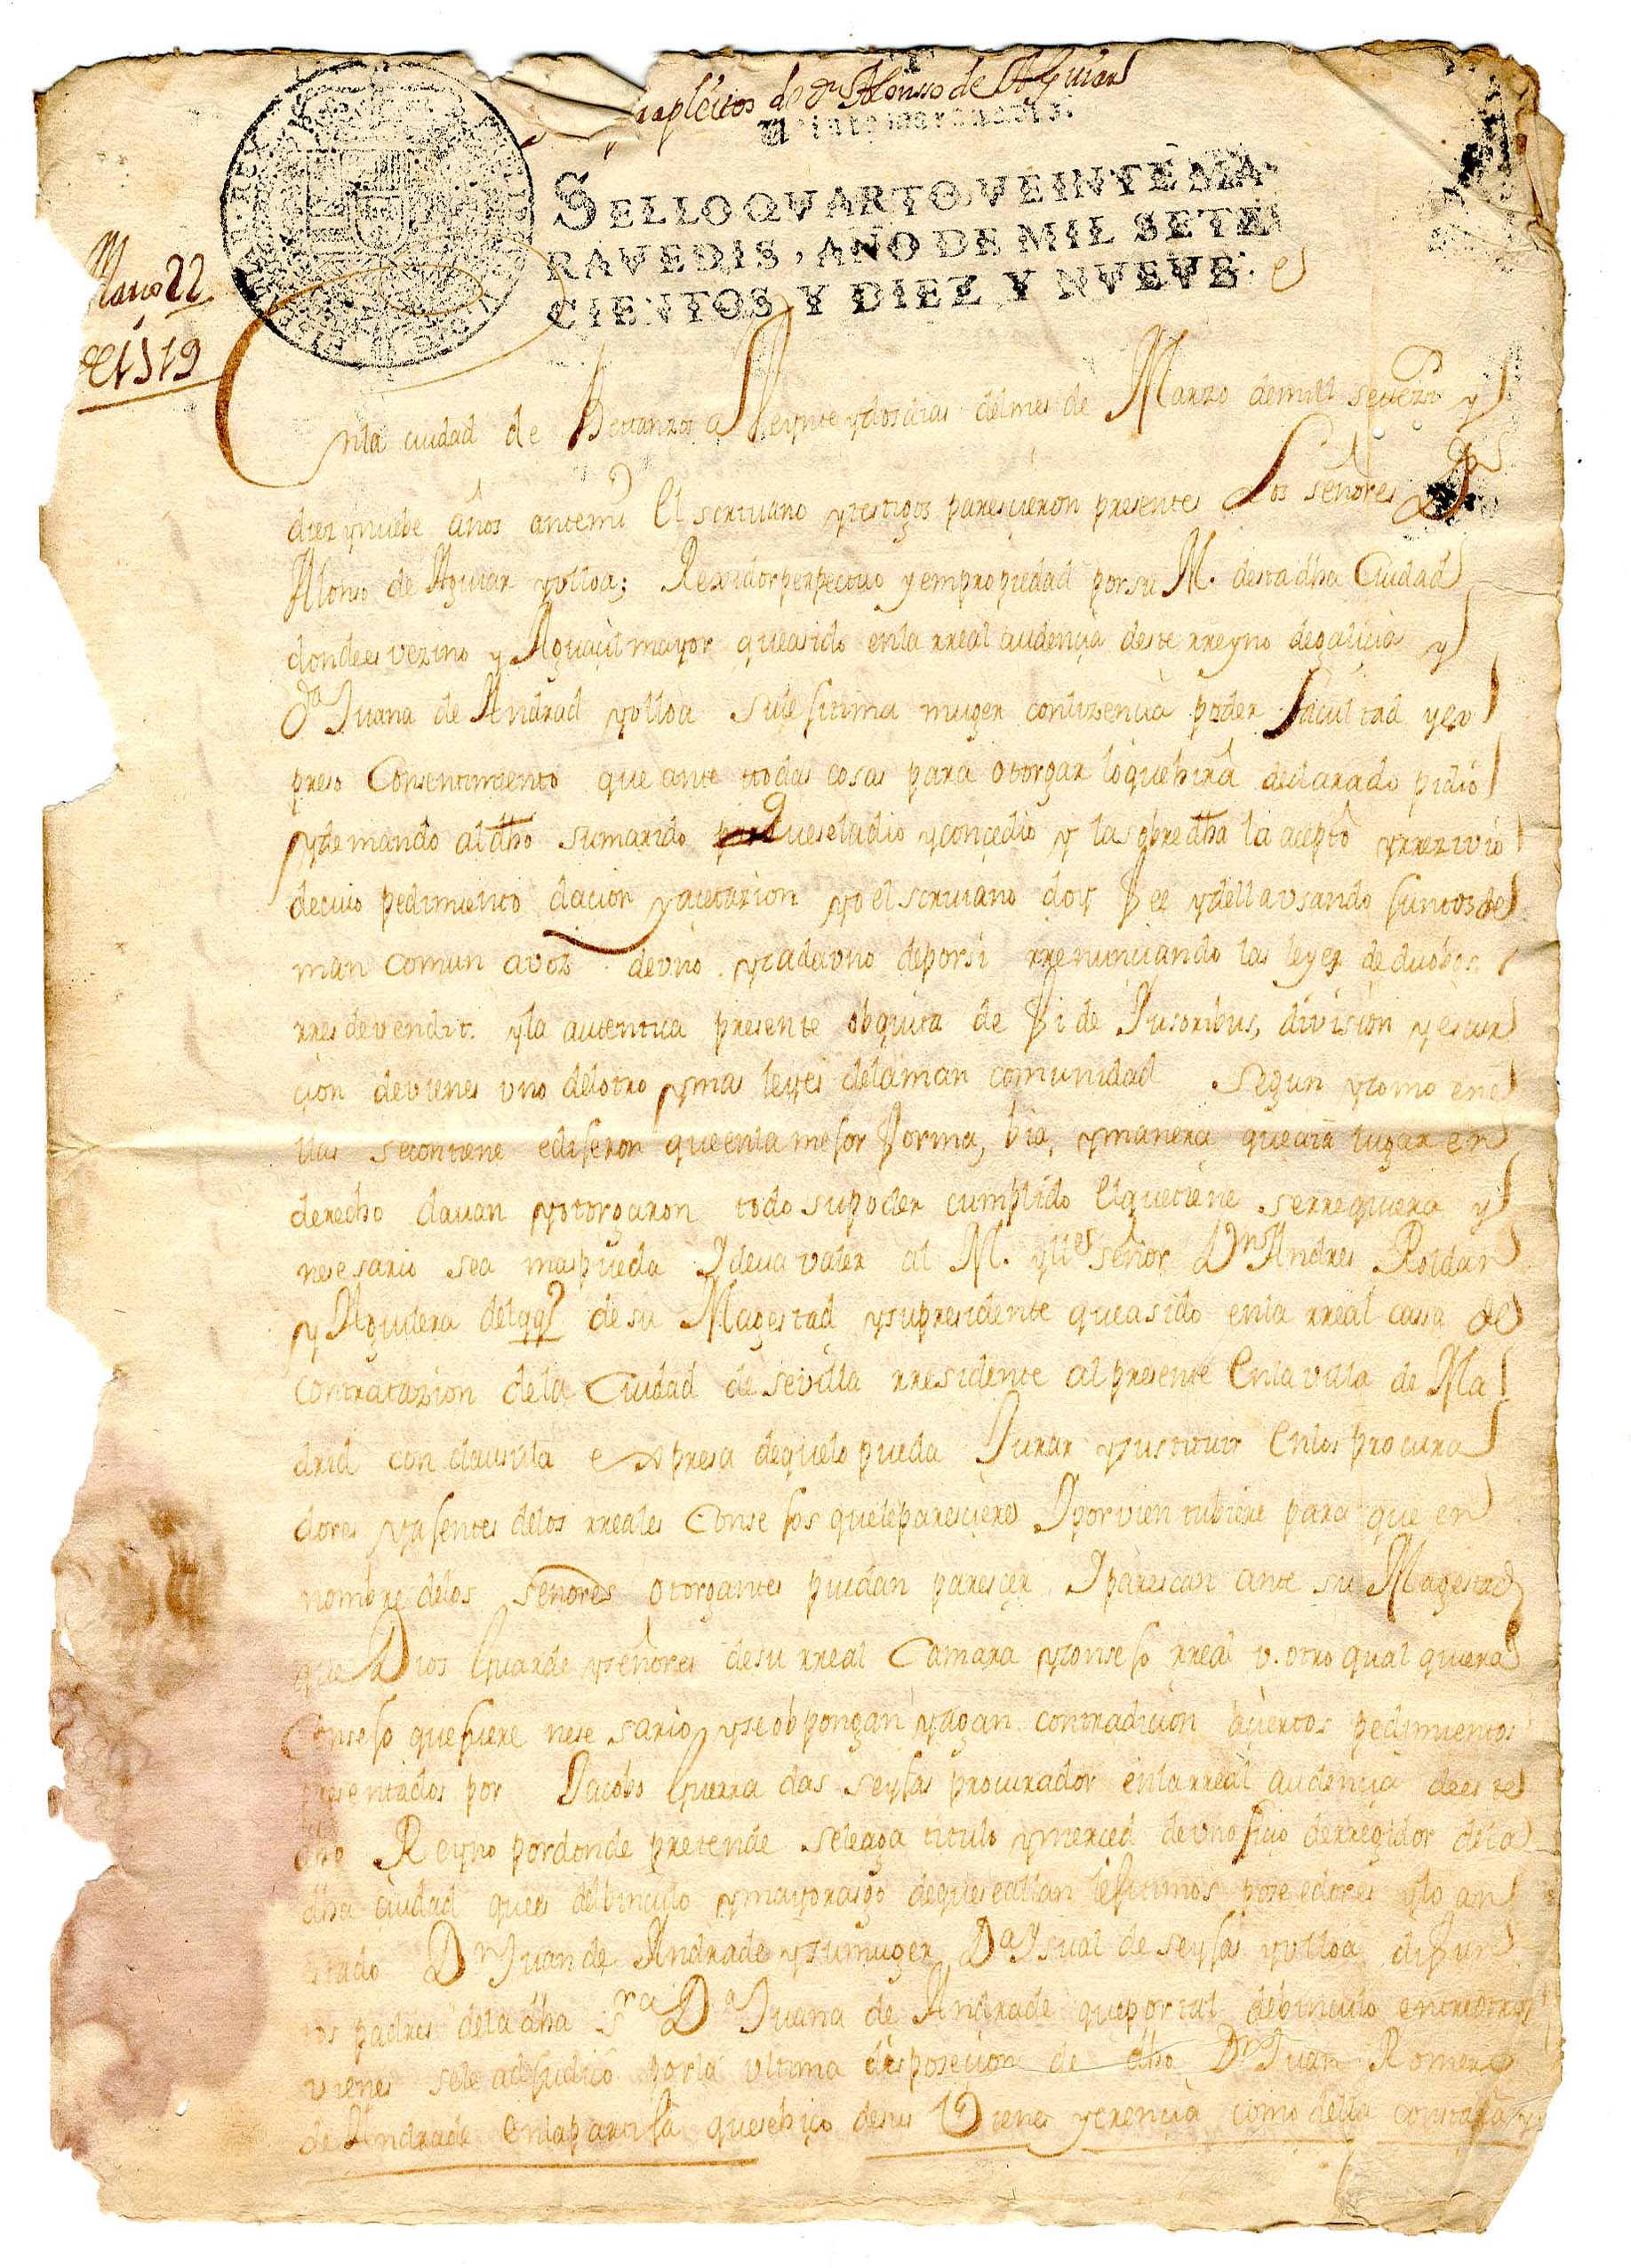 pleitos de Dn Alonsso de Aguiar
Veinte maravedis.
SELLO QVARTO, VEINTE MA-
RAVEDIS, AÑO DE MIL SETE
CIENTOS Y DIEZ Y NVEVE.
Março 22
de 1719
Enla ciudad de Betanzos a Veynte ydos dias delmes de Marzo demill settezos y
diez ynuebe años antemi El scrivano ytestigos parescieron presentes Los señores Dn
Alonso de Aguiar yulloa; Rexidor perpectuo y empropiedad porsu M. desta dha Ciudad
dondees vezino y Alguaçil mayor queasido enla rreal audençia deste rreyno degaliçia y
Da Juana de Andrad yulloa sulesitima muger conlizencia poder facultad yex
preso Consentimiento que ante ttodas cosas para otorgar loquehirá declarado pidió
ydemandó aldho sumarido queseladio yconçedio y lasobredha la aceptó yrrezivió
decuio pedimiento daçion yacetazion yo el scrivano doy fee ydella usando juntos de
man comun avoz deuno ycadauno deporsi rrenunciando las leyes deduobos
rres devendit. yla autentica presente obquita de fide Jusoribus, division yescur
çion devienes uno delotro ymas leyes delaman comunidad segun ycomo ene
llas secontiene edijeron queenla mejor forma, bia, ymanera queaia lugar en
derecho davan yotorgaron todo supoder cumplido Elquetiene serrequiera y
nesesario sea maspueda Ideva valer al M. ylle señor Dn Andres Roldan
y Aguilera del qq desu Magestad ysupresidente queasido enla rreal cassa de
contratazion dela Ciudad desevilla rresidente alpresente Enlavilla de Ma
drid con clausula expresa dequelo pueda Jurar ysustituir Enlos procura
dores yajentes delos rreales Consejos queleparesciere Iporvien tubiere para que en
nombre delos señores otorgantes puedan parescer Iparescan ante su Magestad
que Dios Guarde yseñores desu rreal Camara yconsejo rreal v. otro qual quiera
Consejo quefuere nese sario yseobpongan yagan contradicion açiertos pedimientos
presentados por Jacobo Guerra das seyjas procurador enlarreal audencia deeste
dho Reyno pordonde pretende seleaga titulo ymerced deunoficio derregidor dela
dha ciudad quees delbinculo ymayorasgo dequeseallan lesitimos poseedores ylo an
estado Dn Juan de Andrade ysumuger Da Ysaual de seyjas yulloa difun
tos padres deladha Sra Da Juana de Andrade queportal debinculo entreotros
vienes sele adjudicó porla ultima disposecion de dho Dn Juan Romero
de Andrade Enlapartija quesehiço desus Vienes yerencia como della constará y